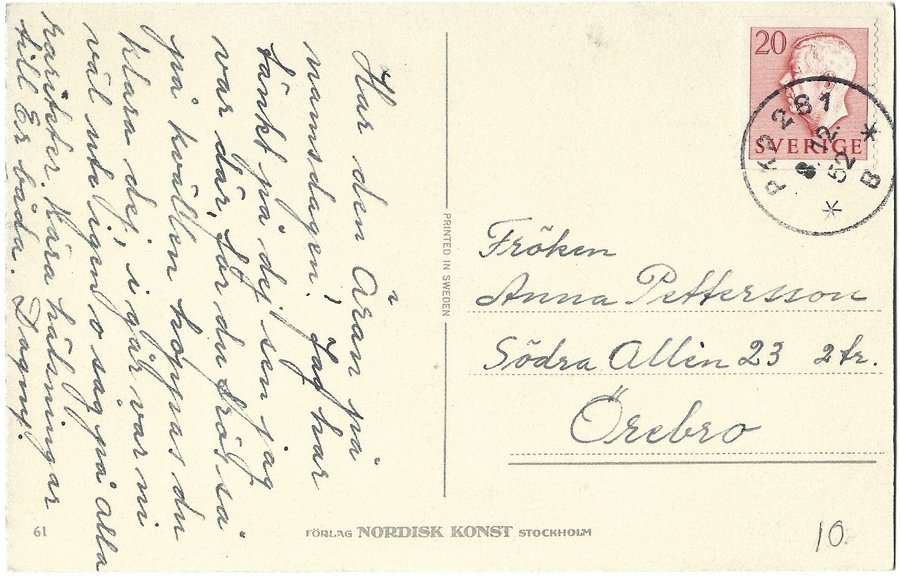 Har den Äran på
namnsdagen. Jag har
tänkt på dej sen jag
var där, för du frös så
på kvällen hoppas du
klara dej, i går var ni
väl ute igen o såg på alla
rariteter. Kära hälsningar
till Er båda. Dagny.
PRINTED IN SWEDEN
20
SVERIGE
PKP 2 61
8.12.
52
* B *
Fröken
Anna Pettersson
Södra Allén 23 2 tr.
Örebro
61
FÖRLAG NORDISK KONST STOCKHOLM
10.